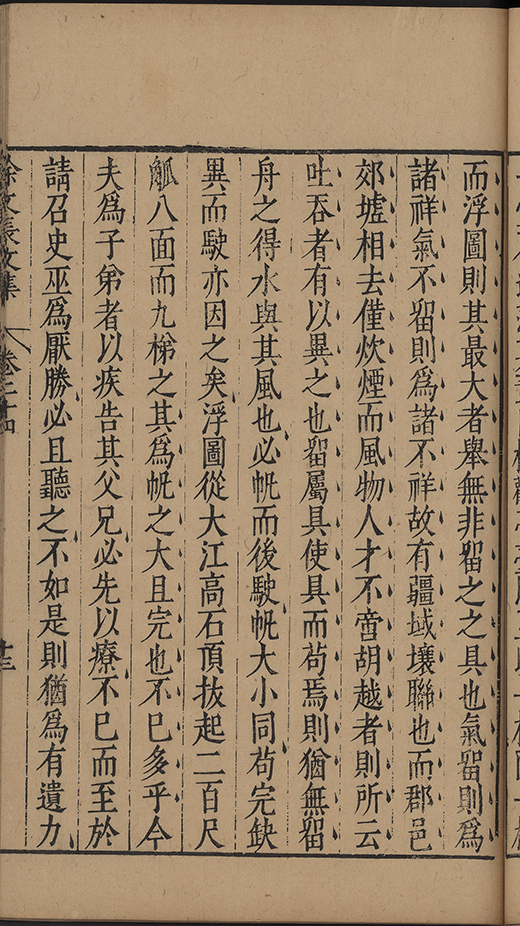 而浮圖則其最大者舉無非畱之之具也氣畱則爲
諸祥氣不畱則爲諸不祥故有疆域壤聯也而郡邑
郊墟相去僅炊煙而風物人才不啻胡越者則所云
吐吞者有以異之也畱屬具使具而苟焉則猶無畱
舟之得水與其風也必帆而後駛帆大小同苟完缺
異而駛亦因之矣浮圖從大江高石頂拔起二百尺
觚八面而九梯之其爲帆之大且完也不已多乎今
夫爲子弟者以疾告其父兄必先以療不已而至於
請召史巫爲厭勝必且聽之不如是則猶爲有遺力
徐文長文集 卷二十四 十三